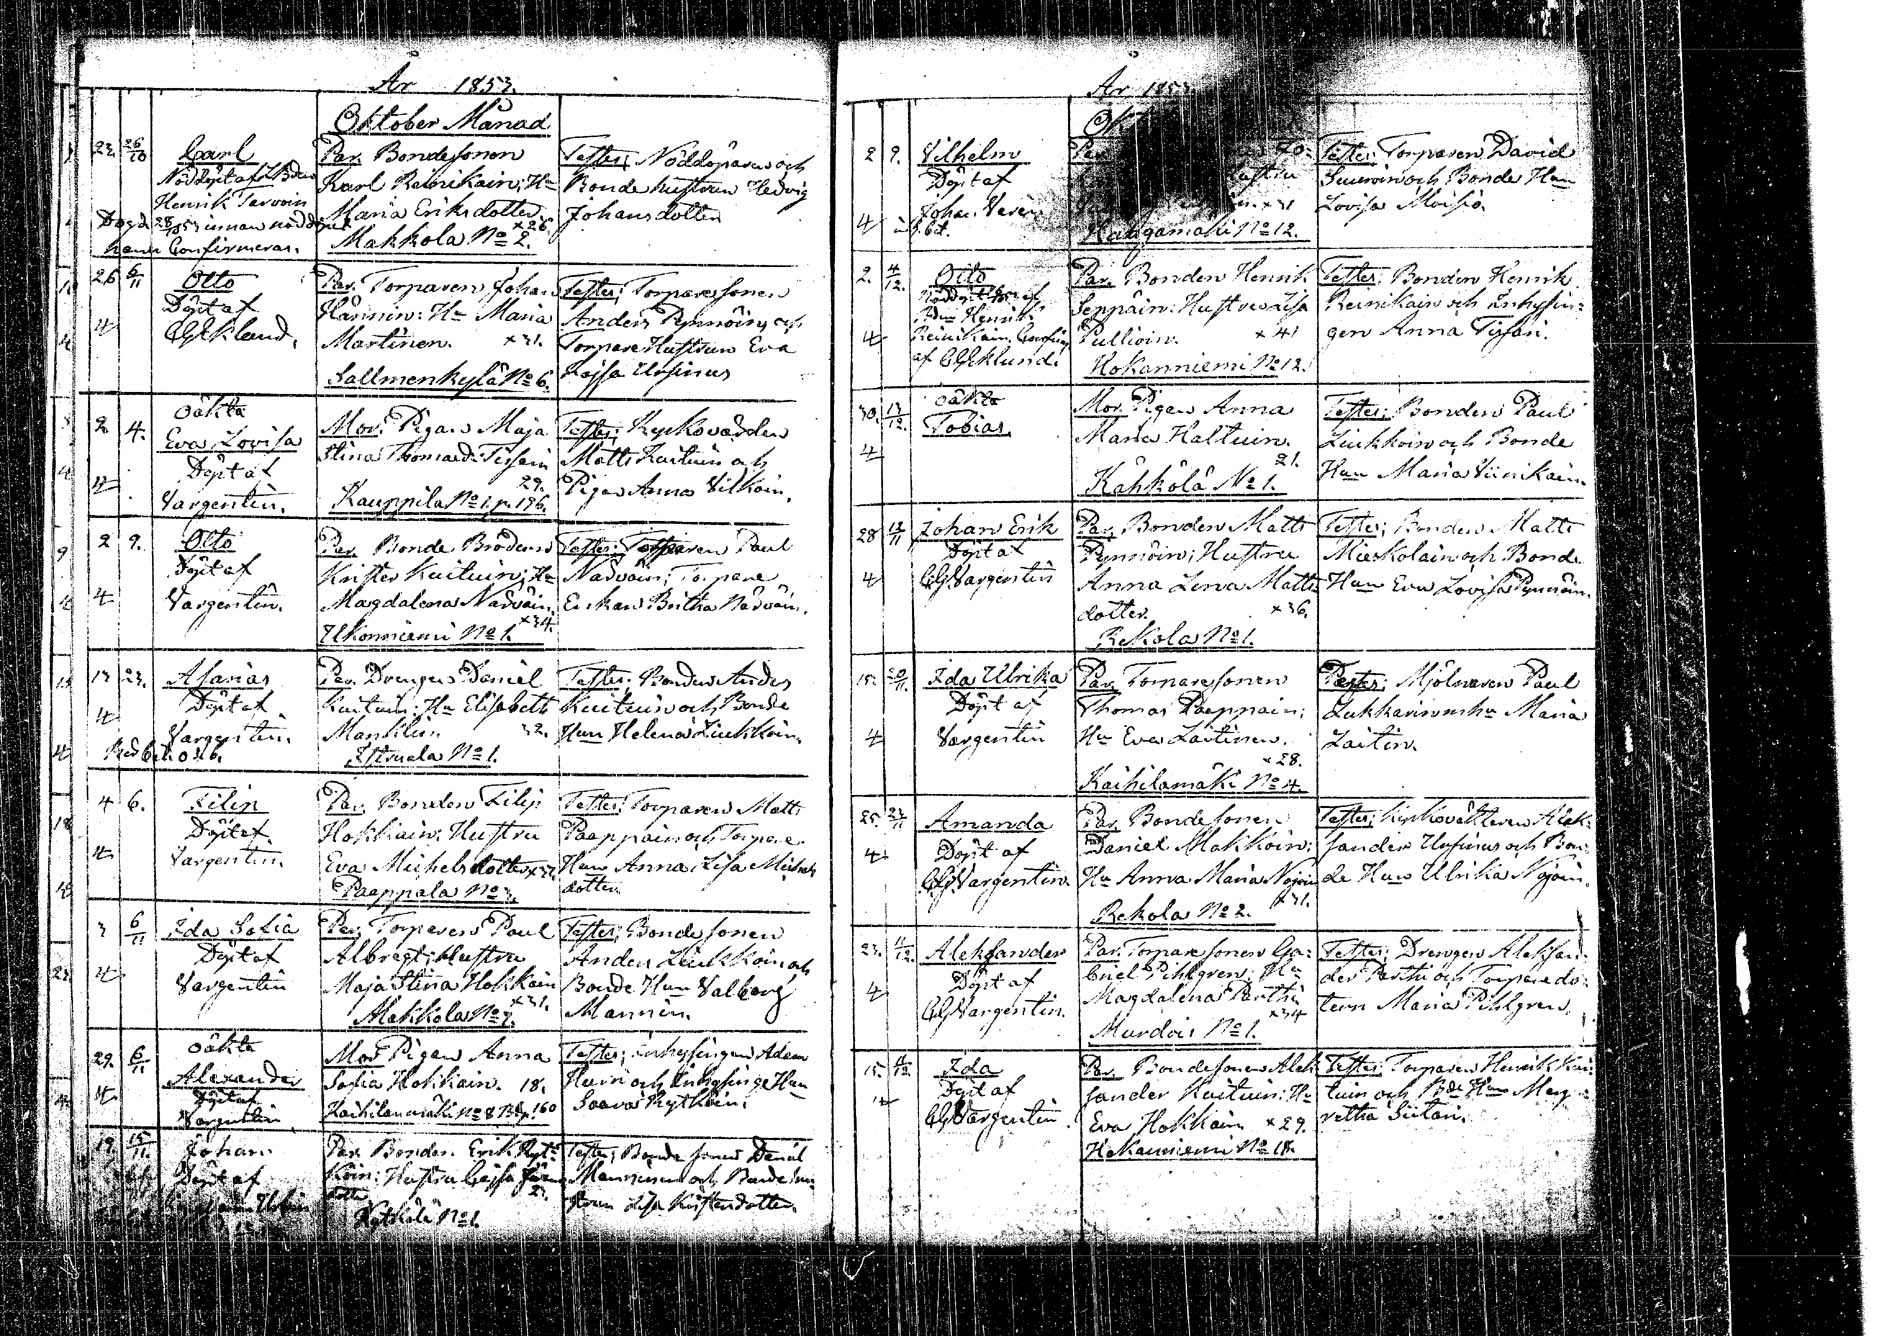 År 1853.
Oktober Månad
23. 26/10 Carl
Nöddöpt af Bonden
Henrik Tarvain
Död d. 28/10 53 innan nöddopet
hann Confirmeras.
Par. Bondesonen
Karl Reinikain; Hu
Maria Eriksdotter
×26.
Makkola No 2.
Testes; Nöddöparen och
Bonde hustrun Hedvig
Johansdotter
26 6/11 Otto
Döpt af
CGEklund.
Par. Torparen Johan
Hännin: Hu Maria
Martinen. ×31.
Sallmenkylä No 6.
Testes; Torparesonen
Anders Pynnöin och
Torpare Hustrun Eva
Lejsa Ursinus
2. 4. oäkta
Eva Lovisa
Döpt af
Vargentin.
Mor. Pigan Maja
Stina Thomasd. Tissain
29.
Kauppila No 1. p. 196.
Testes; Kyrkovärden
Matts Kuituin och
Pigan Anna Vilkain.
2 9. Otto
Döpt af
Vargentin.
Par. Bonde Brodern
Krister Kuituin; Hu
Magdalena Nadväin.
×34.
Ukonniemi No 1.
Testes; Torparen Paul
Nadväin; Torpare
Enkan Britha Nadväin.
13 23. Asarias
Döpt af
Vargentin.
Par. Drengen Daniel
Kuituin; Hu Elisabeth
Manthin 32.
Istruala No 1.
Testes. Bonden Anders
Kuituin och Bonde
Hun Helena Liukkoin.
4 6. Filip
Döpt af
Vargentin.
Par. Bonden Filip
Hokkain; Hustru
Eva Michelsdotter ×37.
Paappala No 3.
Testes; Torparen Matts
Paappain och Torpare
Hun Anna Lisa Michels
dotter
3 6/11 Ida Sofia
Döpt af
Vargentin
Par. Torparen Paul
Albregt; Hustru
Maja Stina Hokkain
×31.
Makkola No 7.
Testes; Bondesonen
Anders Liukkoin och
Bonde Hun Valborg
Mannin.
29. 6/11 oäkta
Alexander
Döpt af
Vargentin.
Mor Pigan Anna
Sofia Hokkain. 18.
Kaihilanmäki No 8 p. 160
Testes; Inhysingen Adam
Huin och Inhysinge Hun
Saara Kytköin.
19. 15/11 Johan
Döpt af
Par. Bonden Erik Kyt-
köin; Hustru Cajsa
dotter 2
Kythälä No 1.
Testes; Bonde sonen Daniel
Manninen och Bonde hu-
strun Lisa Kristersdotter.
År 1853
Okt
2 9. Vilhelm
Döpt af
Johan Veren
Par.
Hustru
×31
Hakgamäki No 12.
Testes; Torparen David
Suuroin och Bonde Hun
Lovisa Moisio.
2. 4/12. Otto
Nöddöpt af
Bdn Henrik
Reinikain, Confirm.
af CGEklund.
Par. Bonden Henrik
Seppäin: Hustru Lisa
Pullioin. ×41
Hokanniemi No 12.
Testes: Bonden Henrik
Reinikain och inhysin-
gen Anna Tissari.
30. 13/12. oäkta
Tobias.
Mor. Pigan Anna
Maria Haltuin.
21.
Kähkölä No 1.
Testes; Bonden Paul
Liukkoin och Bonde
Hun Maria Viinikain.
28 13/11 Johan Erik
Döpt af
CGVargentin
Par. Bonden Matts
Pynnöin; Hustru
Anna Lena Matts
dotter. ×36.
Rekola No 1.
Testes; Bonden Matts
Mieskolain och Bonde
Hun Eva Lovisa Pynnöin.
15. 20/11. Ida Ulrika
Döpt af
Vargentin
Par. Torparesonen
Thomas Paappain;
Hu Eva Laitinen.
×28.
Kaihilamäki No 4.
Testes; Mjölnaren Paul
Lukkarin och hu Maria
Laitin.
25. 27/11 Amanda
Döpt af
CGVargentin.
Par. Bondesonen
Daniel Makkoin;
Hu Anna Maria Nojoin
×31.
Rekola No 2.
Testes; Kyrkoväktaren Alek-
sander Ursinus och Bon-
de Hun Ulrika Nojoin.
23. 4/12. Aleksander
Döpt af
CGVargentin.
Par. Torparesonen Ga-
briel Pihlgren; Hu
Magdalena Parthi
×34
Murdois No 1.
Testes; Drengen Aleksan-
der Parthi och Torparedo-
tern Maria Pihlgren.
15. 4/12. Ida
Döpt af
CGVargentin.
Par. Bondesonen Alek-
sander Kuituin: Hu
Eva Hokkain ×29.
Hokanniemi No 18.
Testes; Torparen Henrik Kui-
tuin och Bde Hun Marg-
retha Siitari.